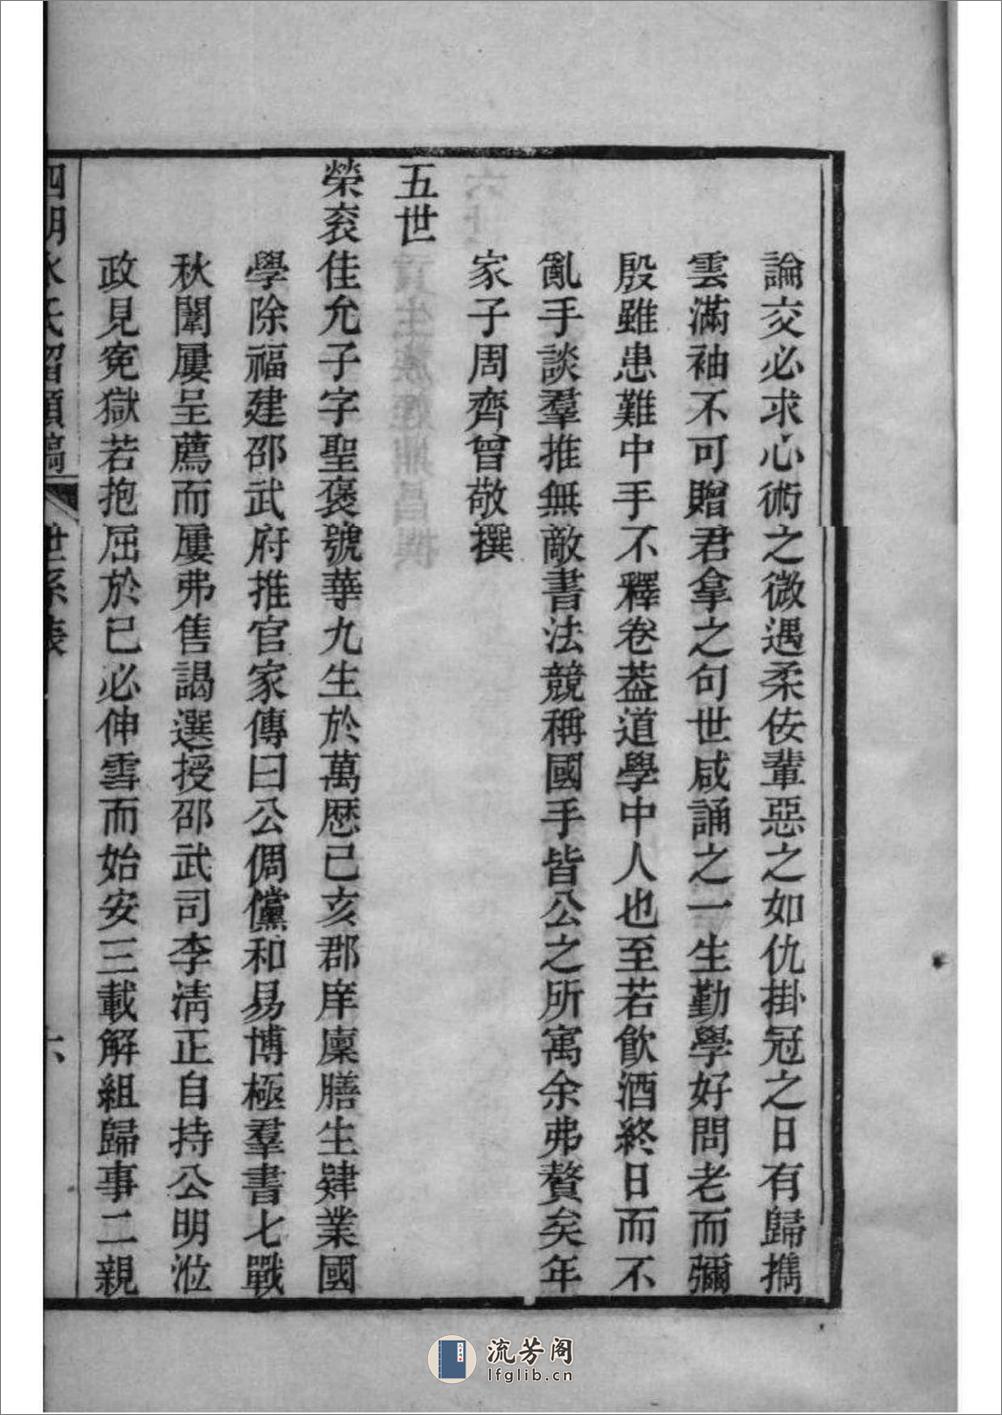 論交必求心術之微遇柔佞輩惡之如仇掛冠之日有歸擕
雲滿袖不可贈君拿之句世咸誦之一生勤學好問老而彌
殷雖患難中手不釋卷葢道學中人也至若飮酒終日而不
亂手談羣推無敵書法競稱國手皆公之所寓余弗贅矣年
家子周齊曾敬撰
五世
榮衮佳允子字聖褒號華九生於萬歷己亥郡庠廩膳生肄業國
學除福建邵武府推官家傳曰公倜儻和易博極羣書七戰
秋闈屢呈薦而屢弗售謁選授邵武司李淸正自持公明涖
政見寃獄若抱屈於已必伸雪而始安三載解組歸事二親
四明水氏留碩稿 世系表 六
流芳阁
lfglib.cn